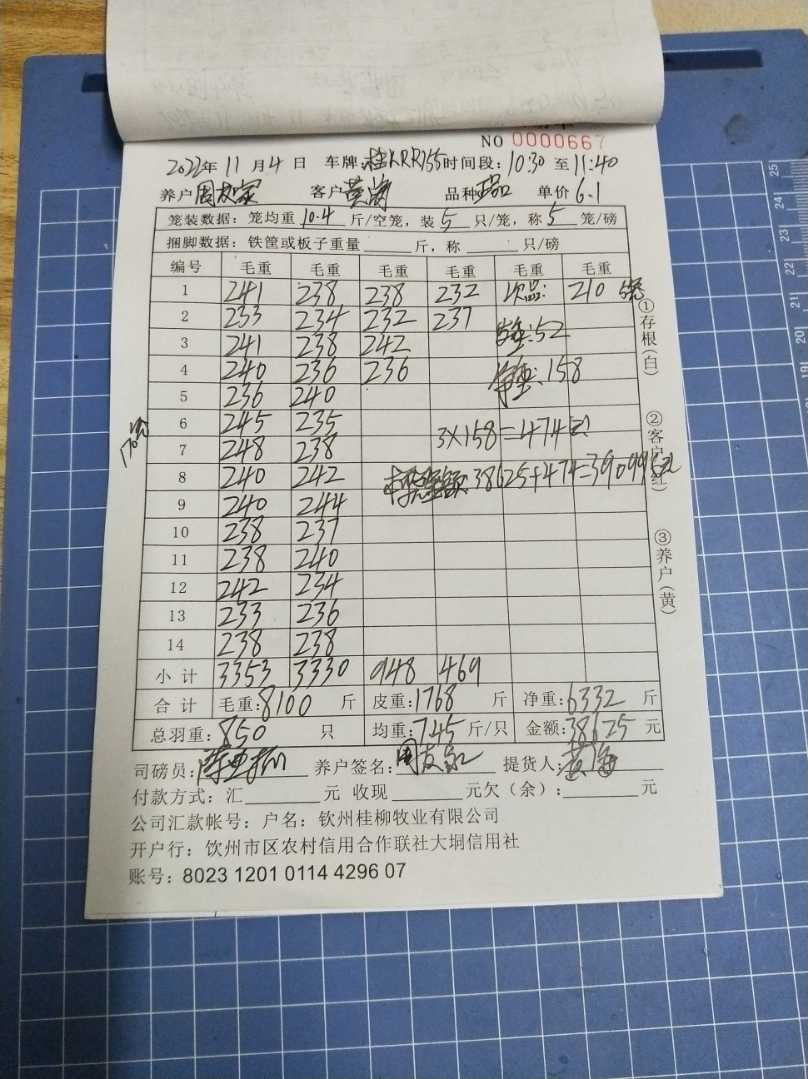 NO 0000667
2022年 11月4日 车牌:桂KRR755 时间段:10:30 至 11:40
养户 周友家 客户 黄海 品种 正品 单价 6.1
笼装数据: 笼均重 10.4 斤/空笼, 装 5 只/笼, 称 5 笼/磅
捆脚数据: 铁筐或板子重量 斤, 称 只/磅
编号 毛重 毛重 毛重 毛重 毛重 毛重
1 241 238 238 232 次品: 210 5笼
2 233 234 232 237
3 241 238 242 皮重:52
4 240 236 236 净重:158
5 236 240
6 245 235
7 248 238 3×158=474元
8 240 242 38625+474=39099元
9 240 244
10 238 237
11 238 240
12 242 234
13 233 236
14 238 238
小计 3353 3330 948 469
合计 毛重:8100 斤 皮重:1768 斤 净重:6332 斤
总羽重:850 只 均重:7.45 斤/只 金额:38625 元
司磅员: 养户签名: 周友家 提货人: 黄海
付款方式: 汇 元 收现 元欠(余): 元
公司汇款帐号: 户名: 钦州桂柳牧业有限公司
开户行: 饮州市区农村信用合作联社大垌信用社
账号: 8023 1201 0114 4296 07
170笼
①存根(白)
②客户(红)
③养户(黄)